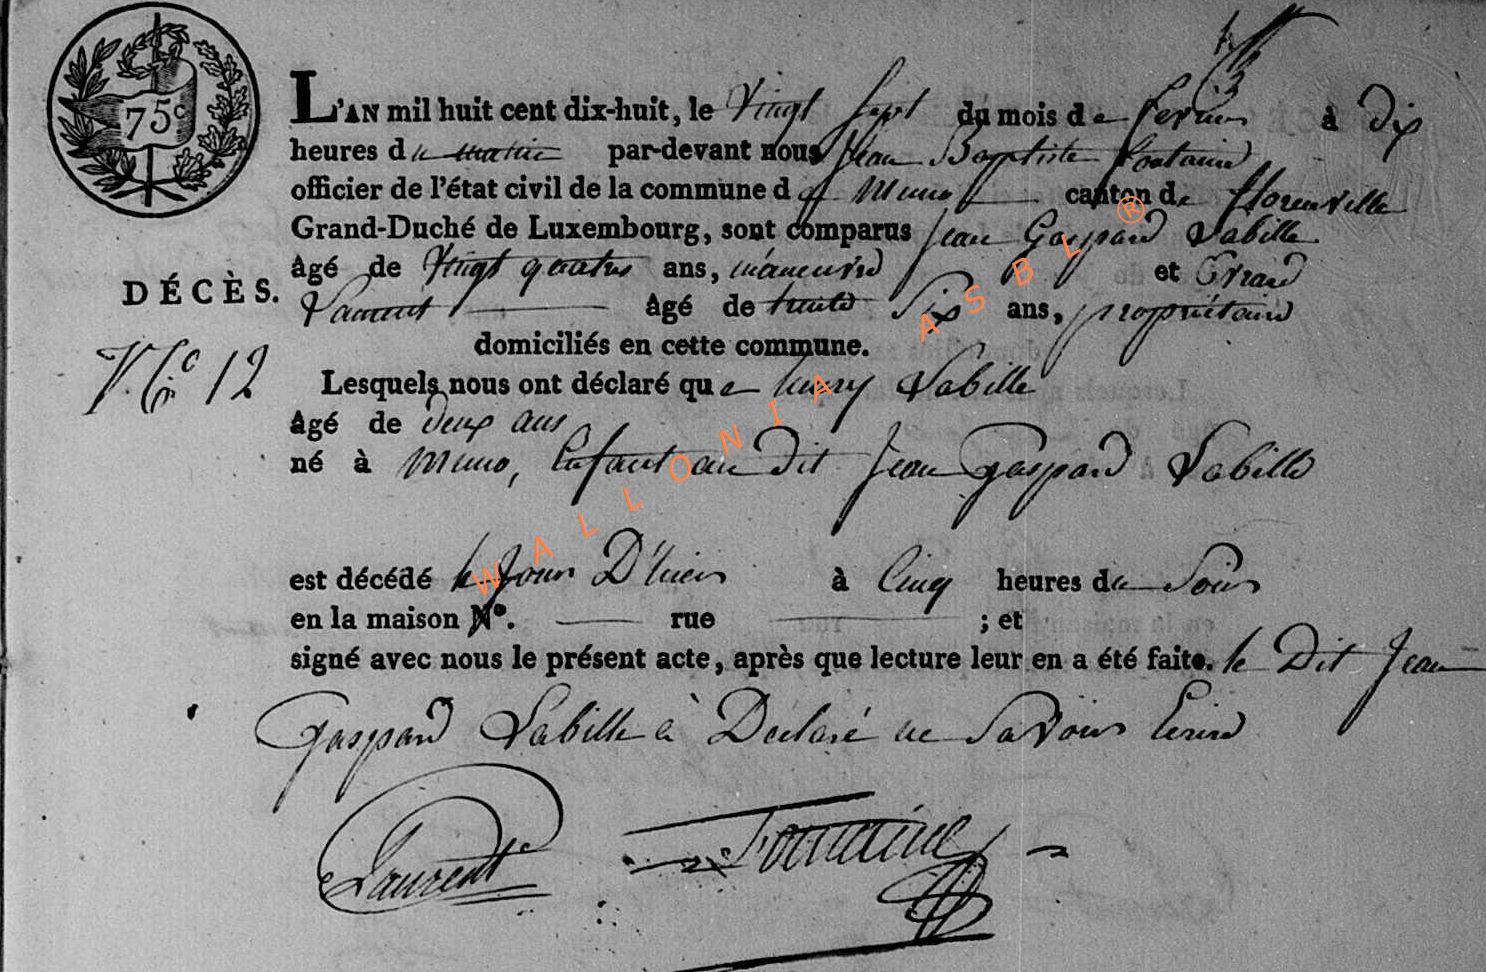 75c
L'AN mil huit cent dix-huit, le Vingt Sept du mois de fevrier à dix
heures du matin par-devant nous Jean Baptiste fontaine
officier de l'état civil de la commune de Muno canton de florenville
Grand-Duché de Luxembourg, sont comparus Jean Gaspard Labille
âgé de Vingt quatre ans, manœuvre et Erard
DÉCÈS.
Laurent âgé de trente Six ans, propriétaire
domiciliés en cette commune.
No 12
Lesquels nous ont déclaré que henry Labille
âgé de deux ans
né à Muno, Enfant au dit Jean Gaspard Labille
est décédé le Jour D'hier à Cinq heures du Soir
en la maison No. rue ; et
signé avec nous le présent acte, après que lecture leur en a été faite. le Dit Jean
Gaspard Labille à Déclaré ne Savoir Ecrire
Laurent Fontaine
WALLONIA ASBL ®